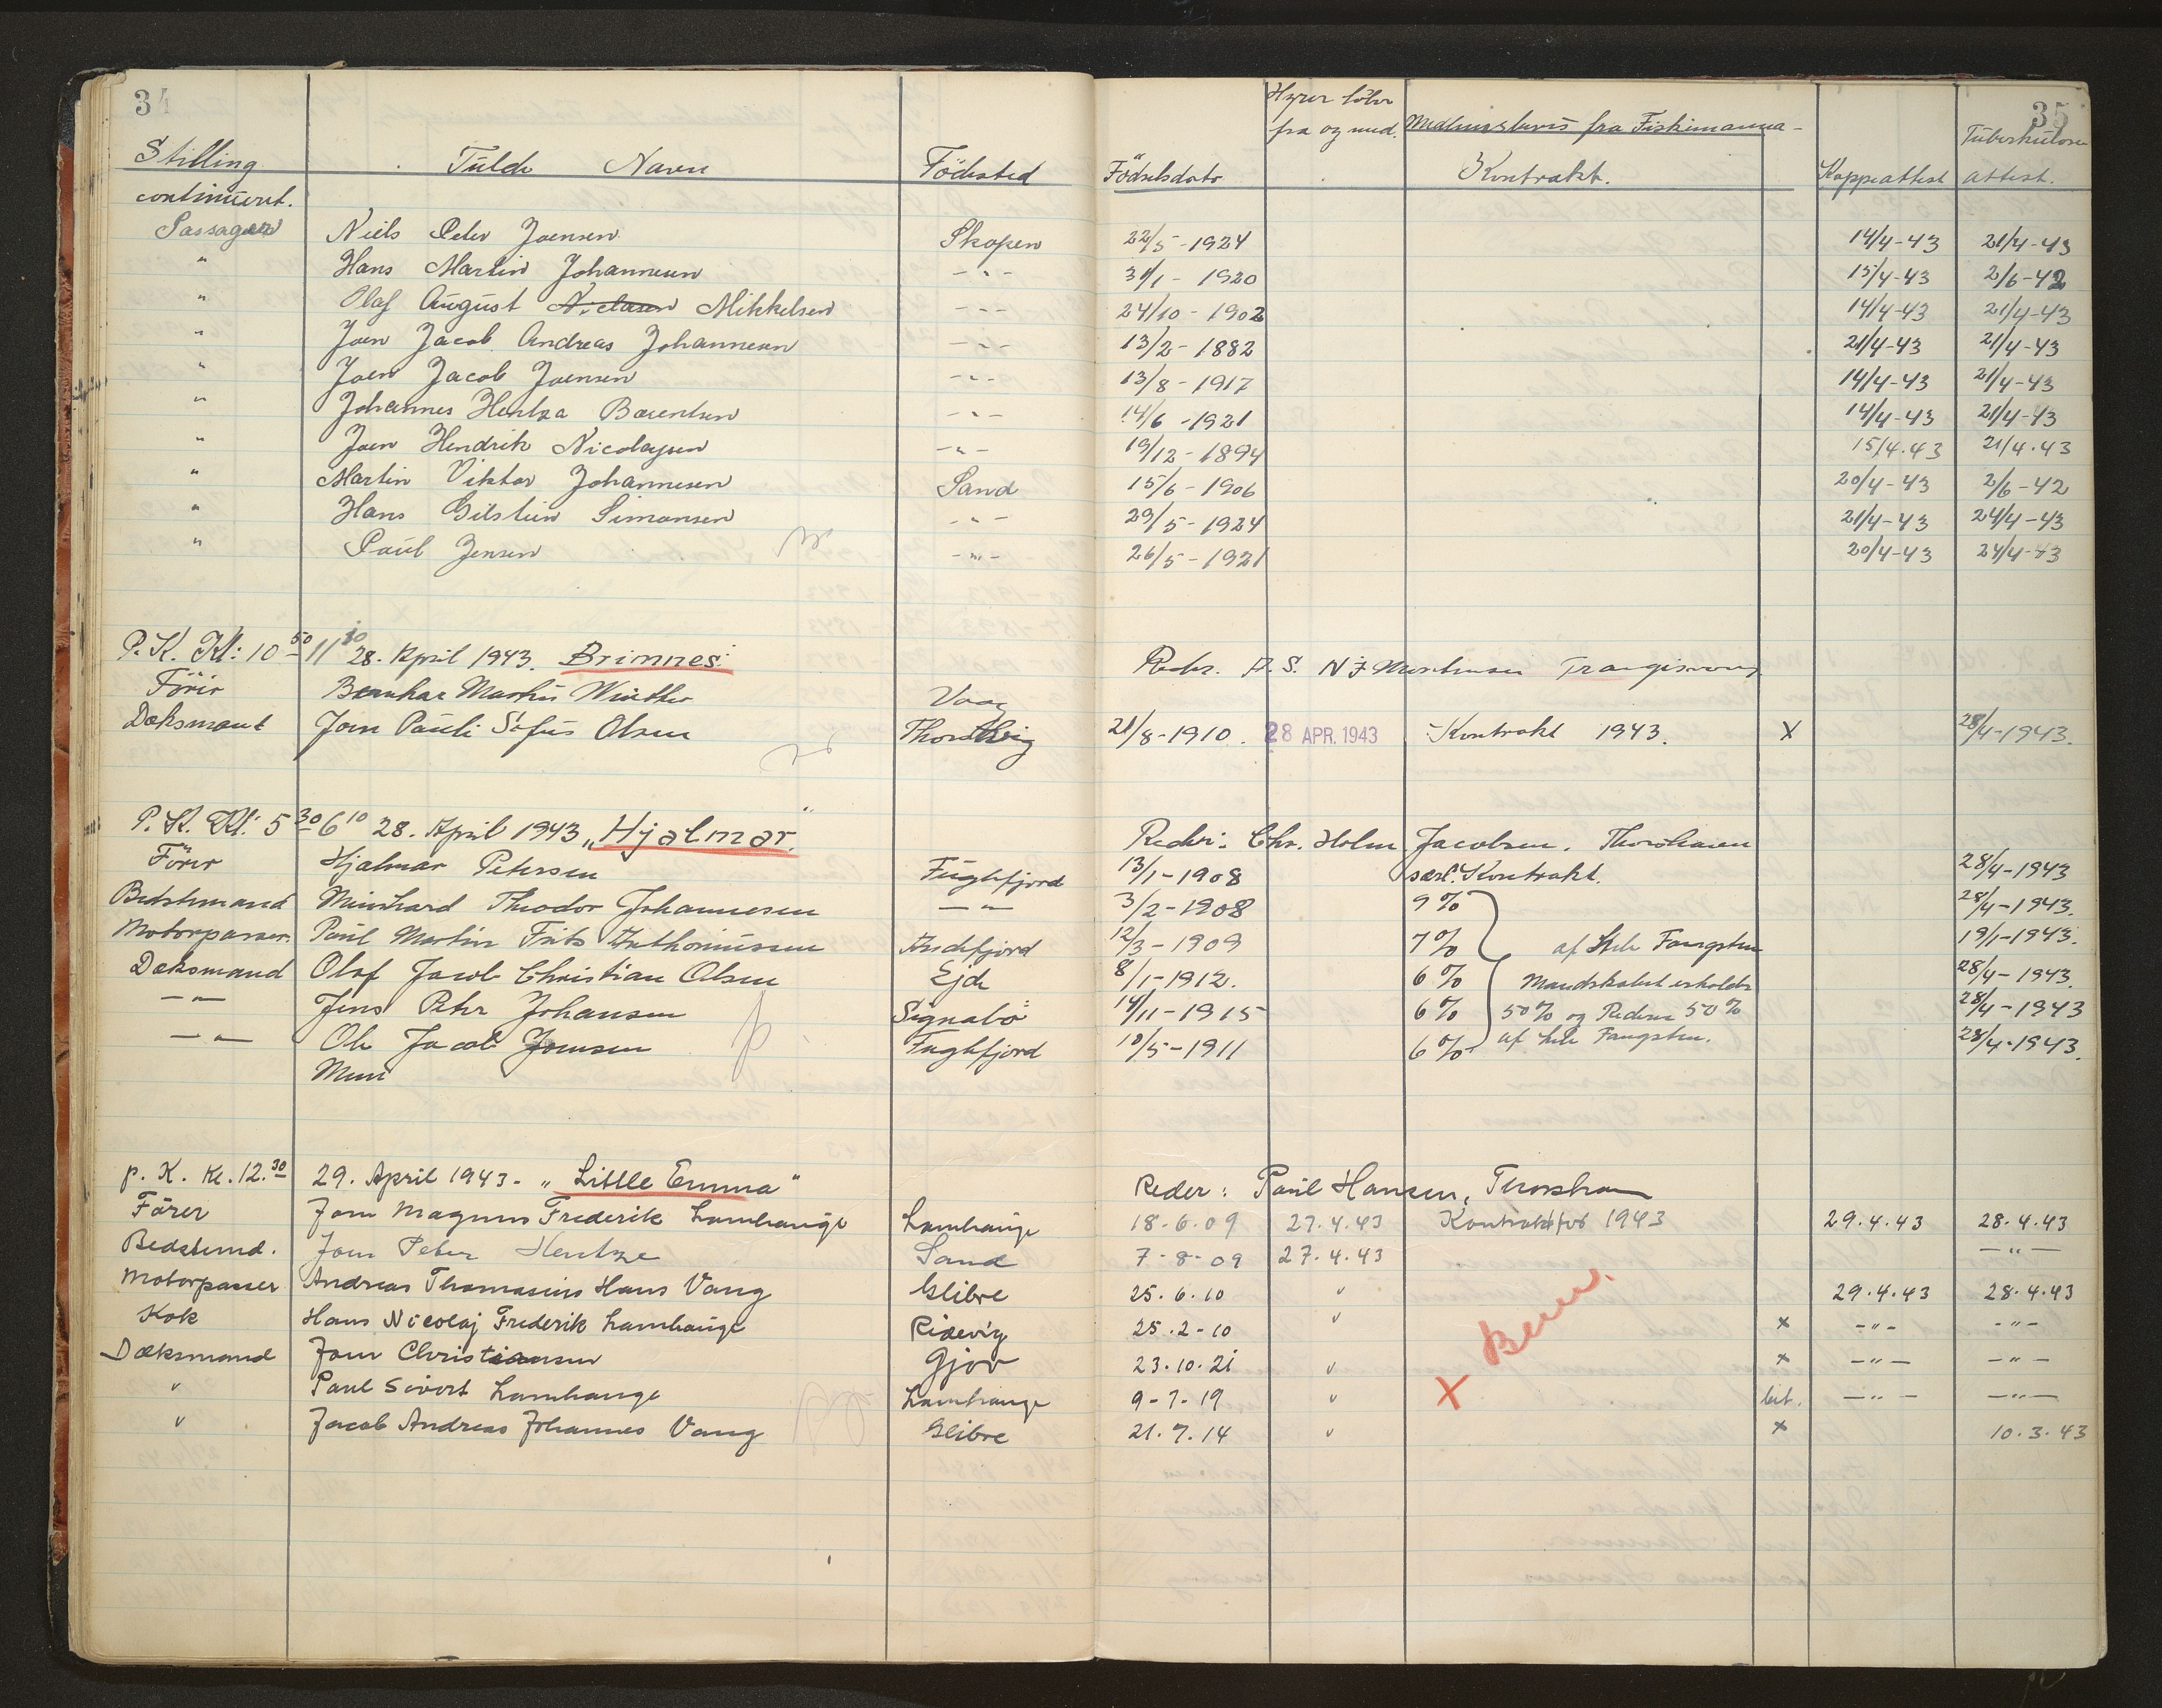 34
35
Stilling Fulde Navn Födested Födselsdato Hyrer löber fra og med. fra Fiskimanna- Kontrakt. Koppeattest Tuberkulose attest.
continueret.
Passager Niels Peter Joensen Skopen 22/5-1924 14/4-43 21/4-43
" Hans Martin Johannesen -"- 31/1-1920 15/4-43 2/6-42
" Olaf August Niclasen Mikkelsen -"- 24/10-1902 14/4-43 21/4-43
" Joen Jacob Andreas Johannesen -"- 13/2-1882 21/4-43 21/4-43
" Joen Jacob Joensen -"- 13/8-1917 14/4-43 21/4-43
" Johannes Hentza Barentsen -"- 14/6-1921 14/4-43 21/4-43
" Joen Hendrik Nicolaysen -"- 19/12-1894 15/4.43 21/4.43
" Martin Viktor Johannesen Sand 15/6-1906 20/4-43 2/6-42
" Hans Gilstein Simonsen -"- 29/5-1924 21/4-43 24/4-43
" Paul Jensen -"- 26/5-1921 20/4-43 24/4-43
P.K. Kl: 10 50 11 10 28. April 1943. Brimnes. Reder. A.S. N.J. Mortensen Trangisvaag
Förer Bernhar Markus Winther Vaag
Daksmant Joen Pauli Sofus Olsen 21/8-1910. 28 APR. 1943 Kontrakt 1943. X 28/4-1943.
P.K. Kl: 5 30 6 10 28. April 1943 „Hjalmar." Rederi: Chr. Holm Jacobsen. Thorshavn
Förer Hjalmar Petersen Fuglefjord 13/1-1908 særl. Kontrakt. 28/4-1943
Bedstemand Meinhard Theodor Johannesen -"- 3/2-1908 9% 28/4-1943.
Motorpasser. Paul Martin Frits Anthoniussen Andefjord 12/3-1909 7% af hele Fangsten 19/1-1943.
Daksmand Olaf Jacob Christian Olsen Ejde 8/1-1912. 6% Mandskabet erholder 28/4-1943.
-"- Jens Peter Johansen Signabö 14/11-1915 6% 50% og Rederne 50% 28/4-1943
-"- Ole Jacob Joensen Fuglefjord 10/5-1911 6% af hele Fangsten. 28/4-1943.
p. K. Kl. 12.30 29. April 1943 - „Little Emma" Reder: Paul Hansen, Thorshavn
Förer Joen Magnus Frederik Lamhauge Lamhauge 18.6.09 27.4.43 Kontrakt for 1943 29.4.43 28.4.43
Bedstemd. Joen Peter Hentze Sand 7-8-09 27.4.43 -"-
Motorpasser Andreas Thomasius Hans Vang Glibre 25.6.10 " 29.4.43 28.4.43
Kok Hans Nicolaj Frederik Lamhauge Ridevig 25.2-10 " x -"- -"-
Dæksmand Joen Christiansen Gjov 23.10.21 " x -"- -"-
" Paul Sivert Lamhauge Lamhauge 9-7-19 " X -"- -"-
" Jacob Andreas Johannes Vang Glibre 21.7.14 " x 10.3.43